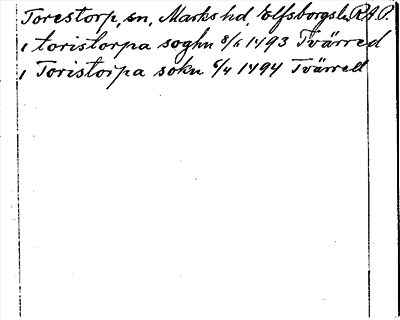 Torestorp, sn, Marks hd, Elfsborgs l. R.A.P.
i toristorpa soghn 8/6 1493 Tvärred
i Toristorpa sokn 6/4 1494 Tvärred